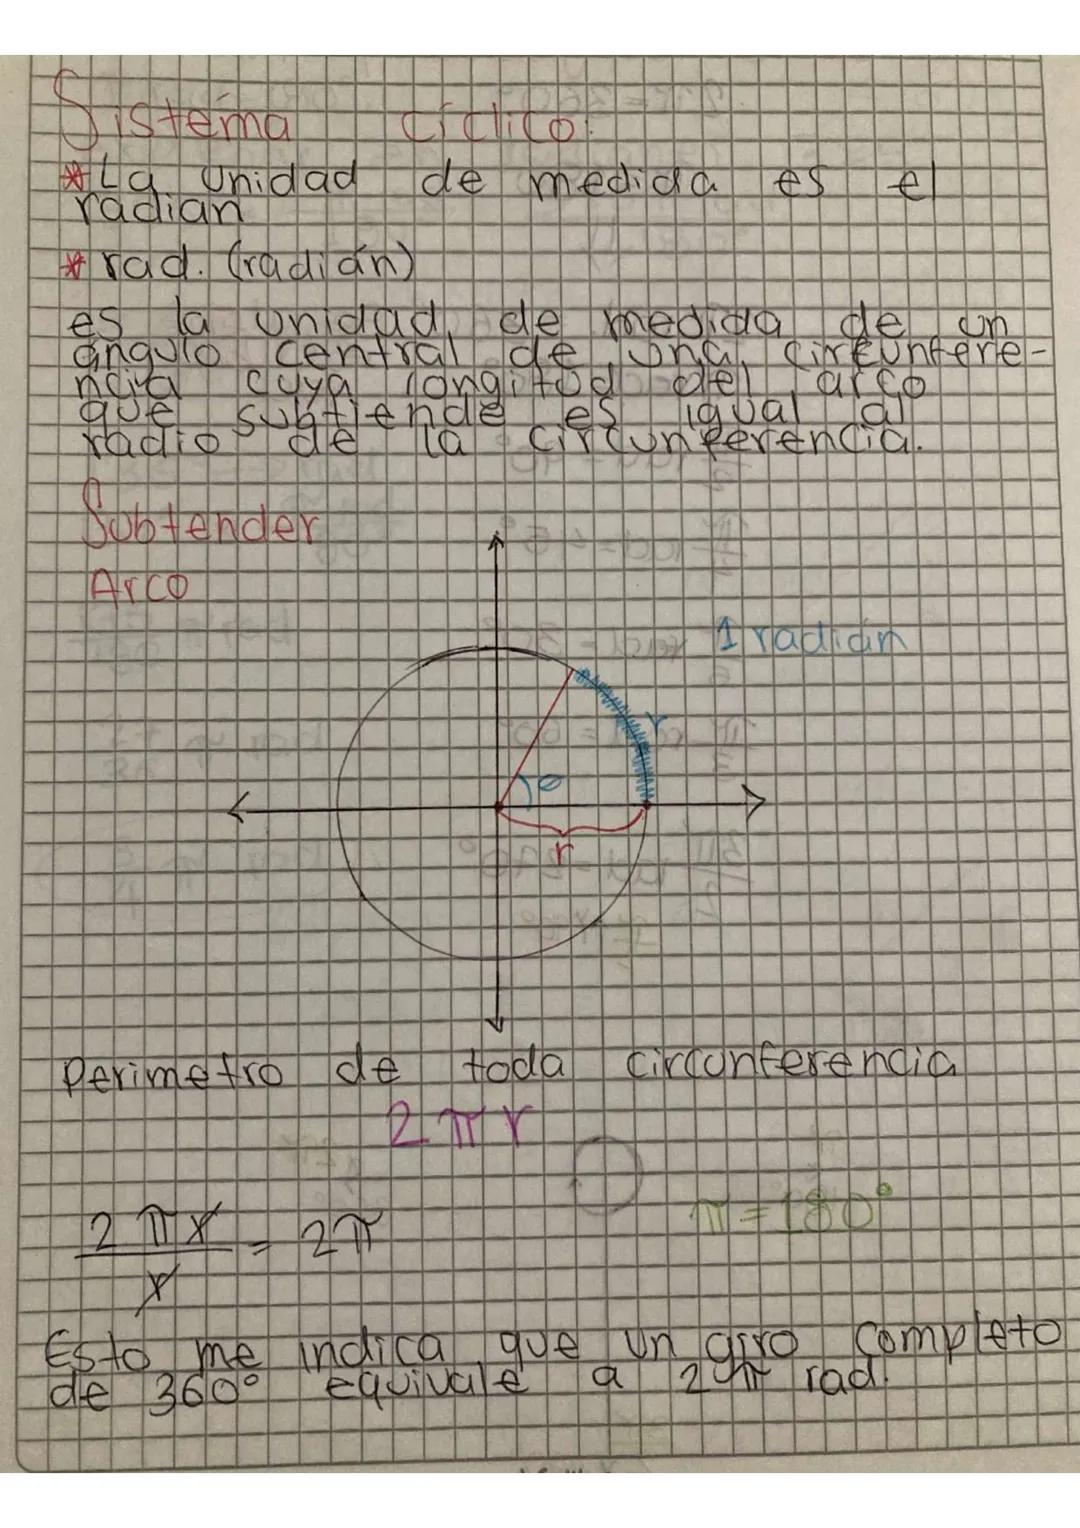 Sistema cíclico:
* La unidad de medida es el
radian
* rad. (radián)
es la unidad de medida de un
ángulo central de una circunfere-
ncia cuya longitud del arco
que subtiende es igual al
radio de la circunferencia.
Subtender
Arco
1 radián
r
θ
r
Perimetro de toda circunferencia
2πr
2πr
r
= 2π
π=180°
Esto me indica que un giro completo
de 360° equivale a 2π rad.